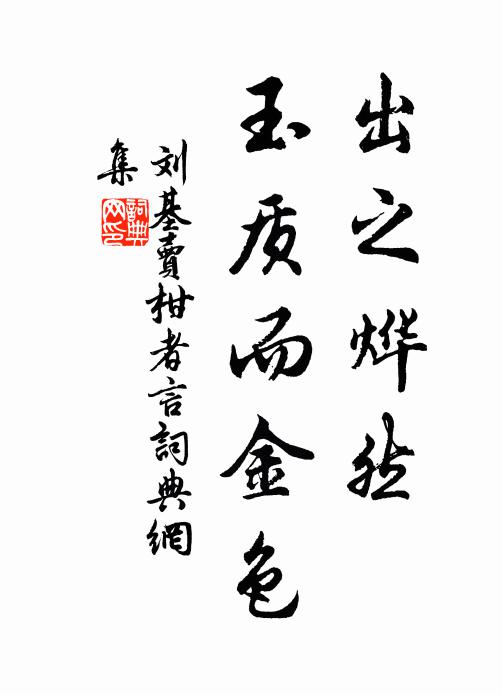 出之烨然
玉质而金色
刘基賣柑者言詞典網
集
詞典
网印